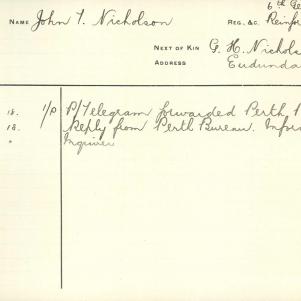 6th Ge
NAME John T. Nicholson REG. &C. Reinfor
NEXT OF KIN G. H. Nichols
ADDRESS Eudunda
18. 1/P P/Telegram forwarded Perth
18. Reply from Perth Bureau. Infor
" Inquirer